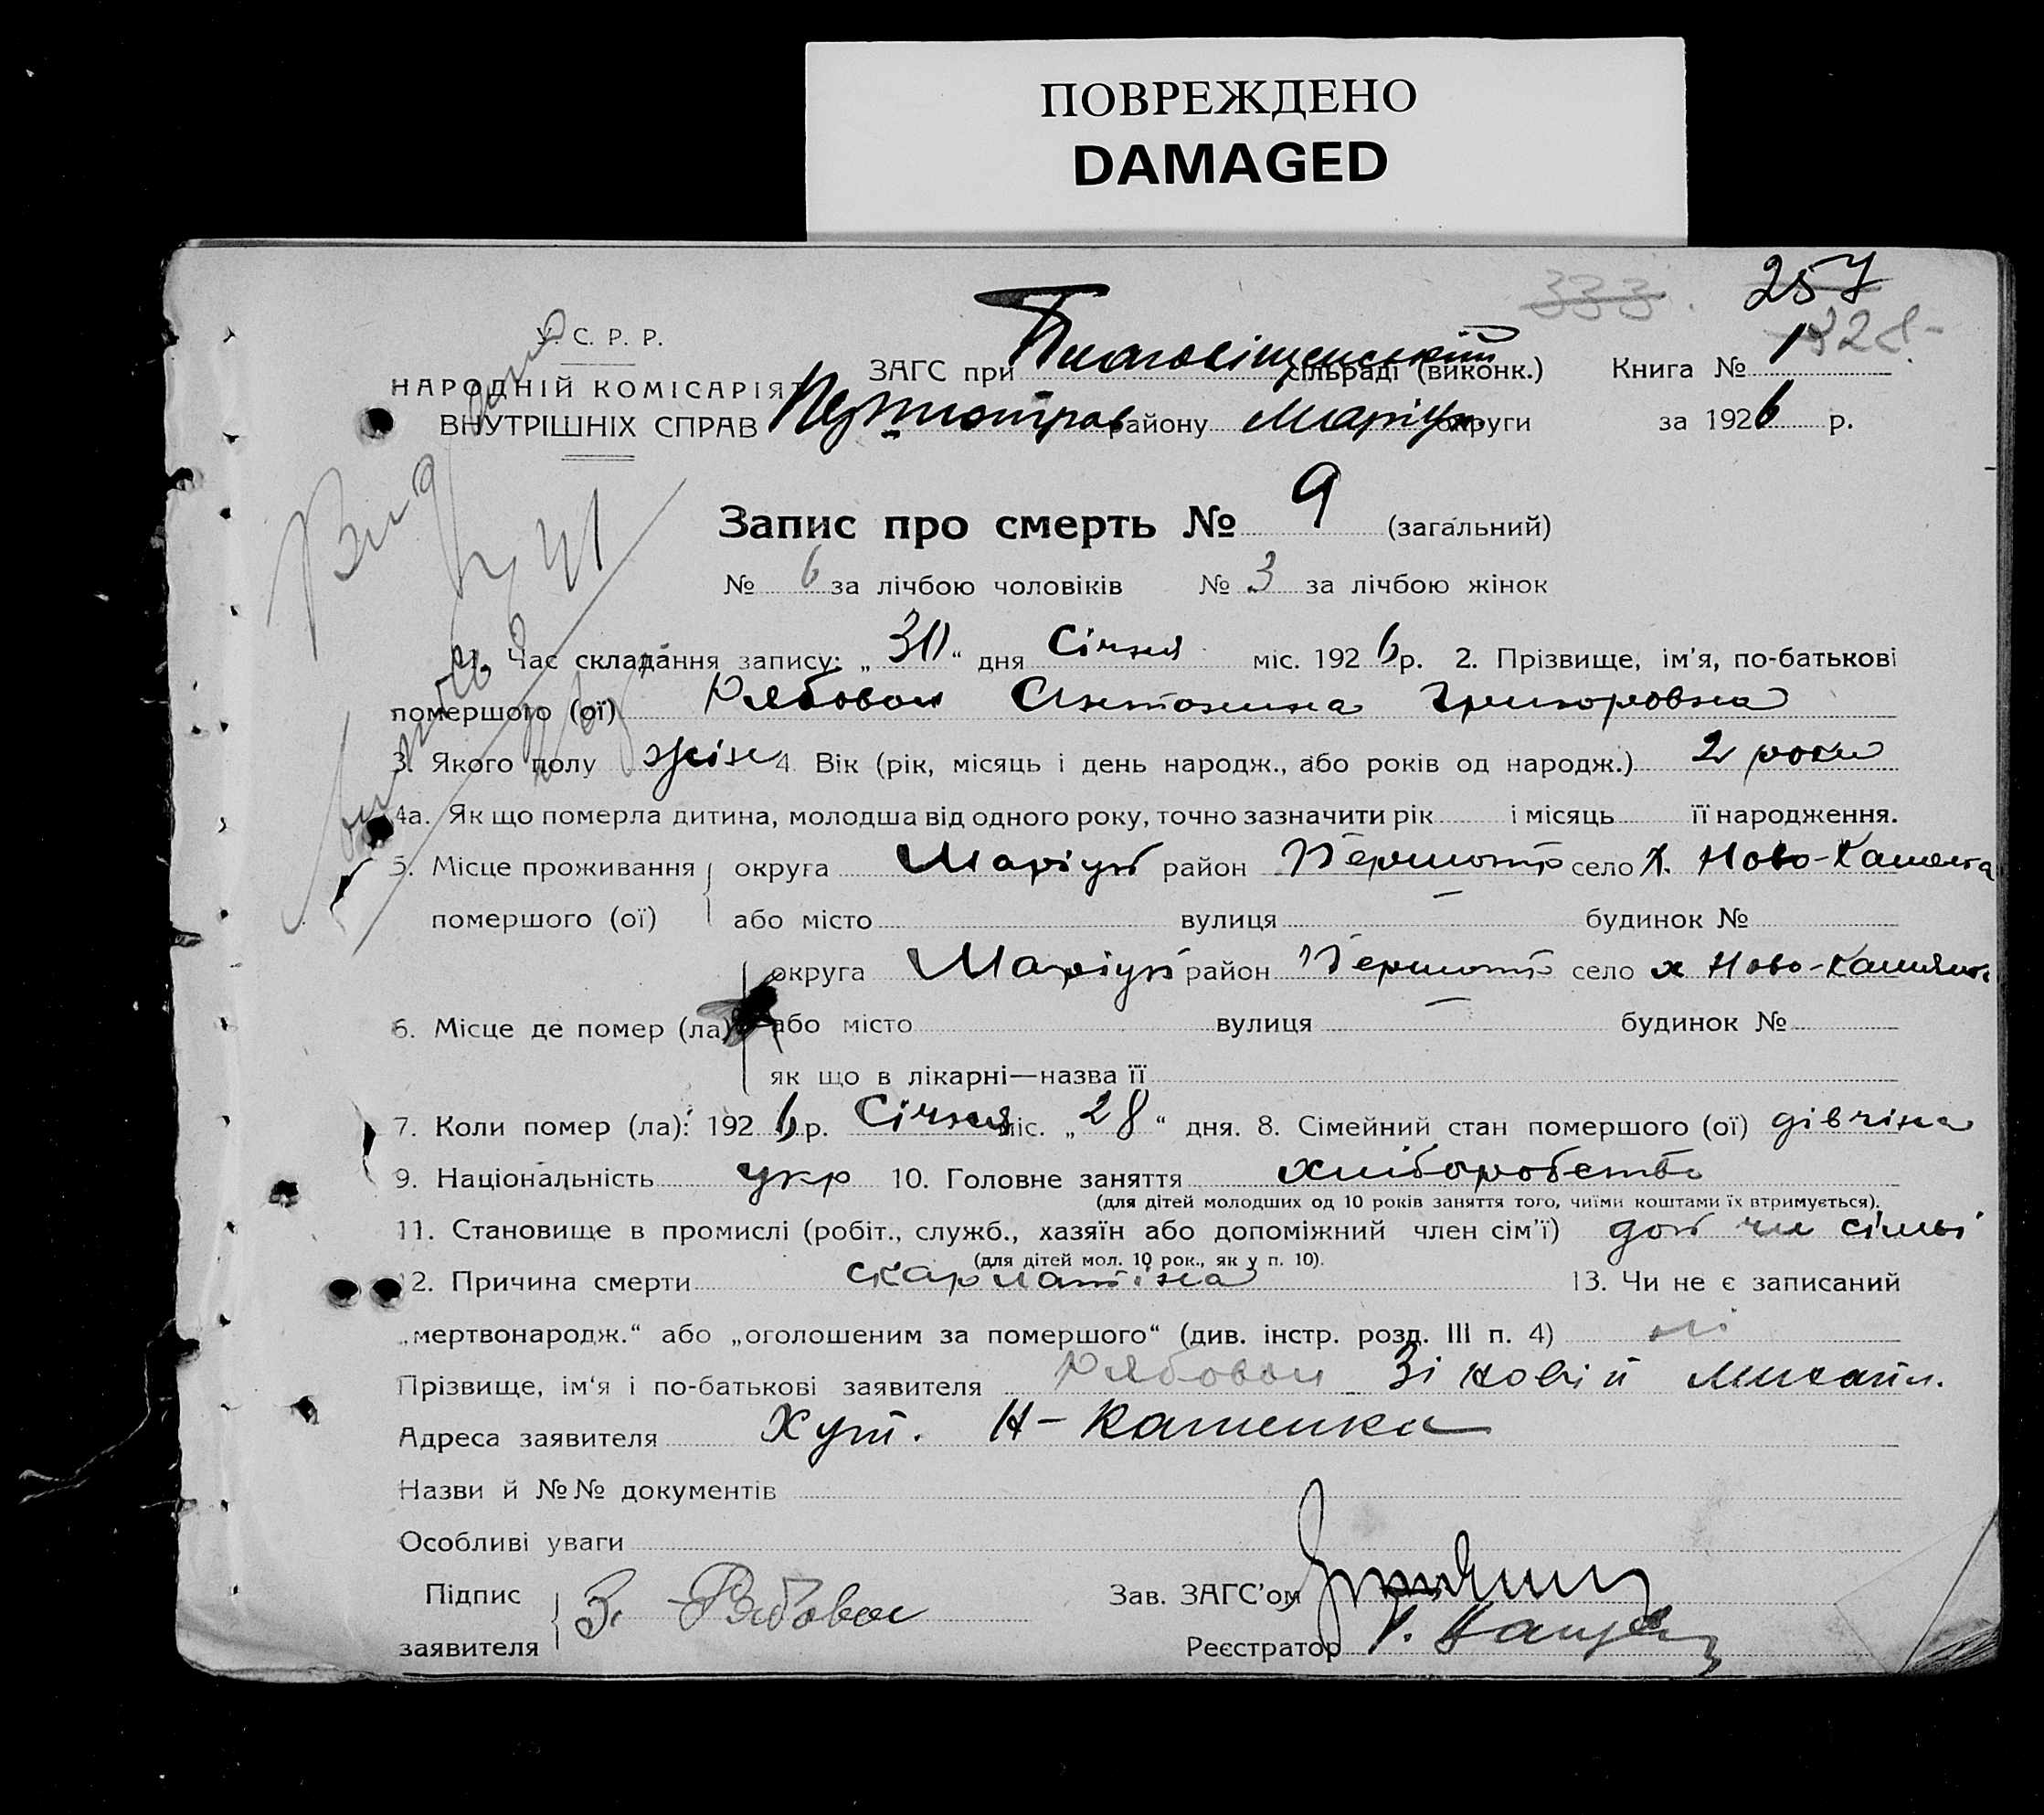 ПОВРЕЖДЕНО
DAMAGED
257
333.
У. С. Р. Р.
НАРОДНІЙ КОМІСАРІЯТ
ВНУТРІШНІХ СПРАВ
ЗАГС при Благовіщенський сільраді (виконк.) Книга № 1
району Маріуп. округи за 1926 р.
Запис про смерть № 9 (загальний)
№ 6 за лічбою чоловіків № 3 за лічбою жінок
1. Час складання запису: „30“ дня Січня міс. 1926 р. 2. Прізвище, ім'я, по-батькові
помершого (ої) Рябовол Антонина Григоровна
3. Якого полу жін 4. Вік (рік, місяць і день народж., або років од народж.) 2 роки
4а. Як що померла дитина, молодша від одного року, точно зазначити рік і місяць її народження.
5. Місце проживання округа Маріуп район Першотр село Х. Ново-Каменка
помершого (ої) або місто вулиця — будинок №
округа Маріуп район Першотр село х Ново-Камянка
6. Місце де помер (ла) або місто вулиця — будинок №
як що в лікарні—назва її
7. Коли помер (ла): 1926 р. Січня міс. „28“ дня. 8. Сімейний стан помершого (ої) дівчіна
9. Національність укр 10. Головне заняття хліборобство
(для дітей молодших од 10 років заняття того, чиїми коштами їх втримується).
11. Становище в промислі (робіт., служб., хазяїн або допоміжний член сім'ї) доп чл сімьі
(для дітей мол. 10 рок., як у п. 10).
12. Причина смерти скарлатіна 13. Чи не є записаний
„мертвонародж.“ або „оголошеним за помершого“ (див. інстр. розд. III п. 4) ні
Прізвище, ім'я і по-батькові заявителя Рябовол Зіновій Михайл.
Адреса заявителя Хут. Н-Каменка
Назви й №№ документів
Особливі уваги
Підпис
заявителя З. Рябовол
Зав. ЗАГС'ом
Реєстратор